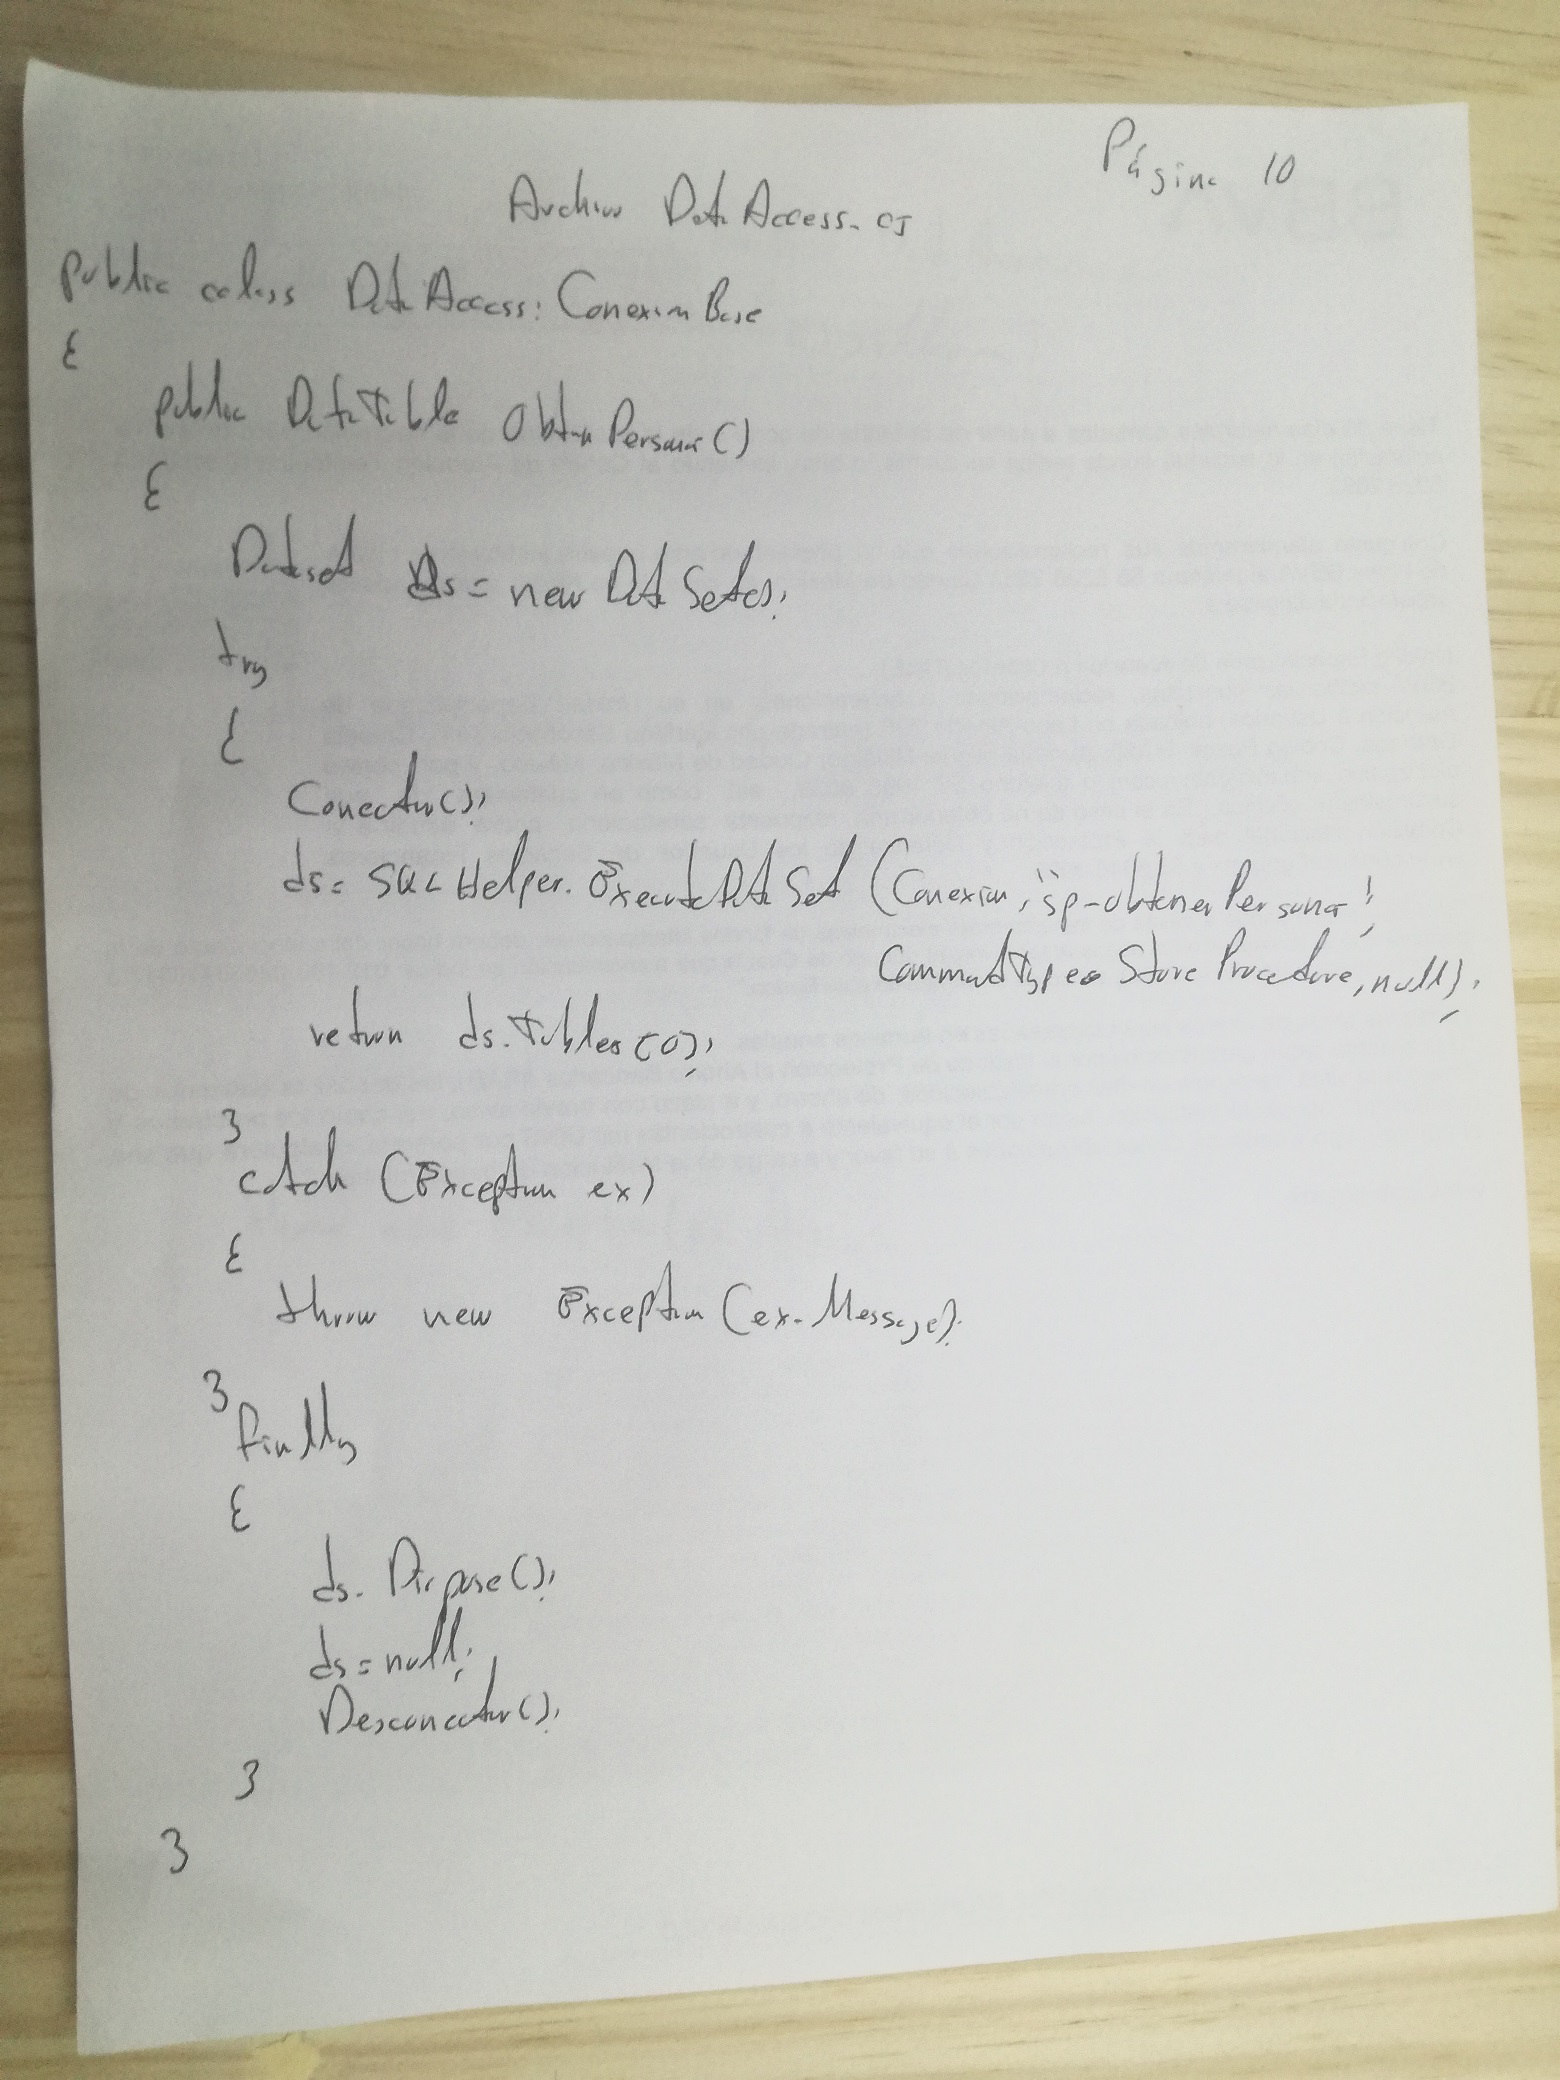 Página 10
Archivo DataAccess.cs
public calass DataAccess: ConexionBase
{
public DataTable ObtenPersonas()
{
Dataset ds = new DataSet();
try
{
Conectar();
ds = SQLHelper.ExecuteDataSet (Conexion, "sp-obtenerPersonas",
CommandType. StoreProcedure, null);
return ds.Tables[0];
}
catch (Exception ex)
{
throw new Exception (ex.Message);
}
finally
{
ds.Dispose();
ds = null;
Desconectar();
}
}